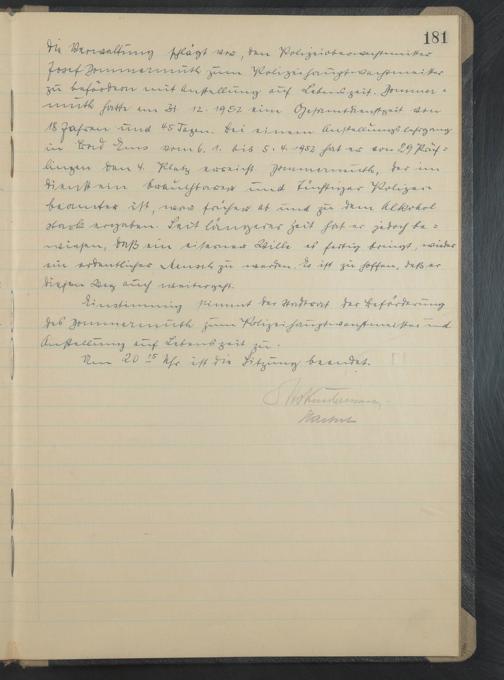 181
Die Verwaltung schlägt vor, den Polizeioberwachtmeister
Josef Sommermuth zum Polizeihauptwachtmeister
zu befördern mit Anstellung auf Lebenszeit. Sommer=
muth hatte am 31. 12. 1952 eine Gesamtdienstzeit von
18 Jahren und 45 Tagen. Bei einem Anstellungslehrgang
in Bad Ems vom 6. 1. bis 5. 4. 1952 hat er von 29 Prüf=
lingen den 4. Platz erreicht. Sommermuth, der im
Dienst ein brauchbarer und tüchtiger Polizei=
beamter ist, war früher ab und zu dem Alkohol
stark ergeben. Seit längerer Zeit hat er jedoch be=
wiesen, daß ein eiserner Wille es fertig bringt, wieder
ein ordentlicher Mensch zu werden. Es ist zu hoffen, daß er
diesen Weg auch weitergeht.
Einstimmig stimmt der Stadtrat der Beförderung
des Sommermuth zum Polizeihauptwachtmeister und
Anstellung auf Lebenszeit zu.
Um 20 15 Uhr ist die Sitzung beendet.